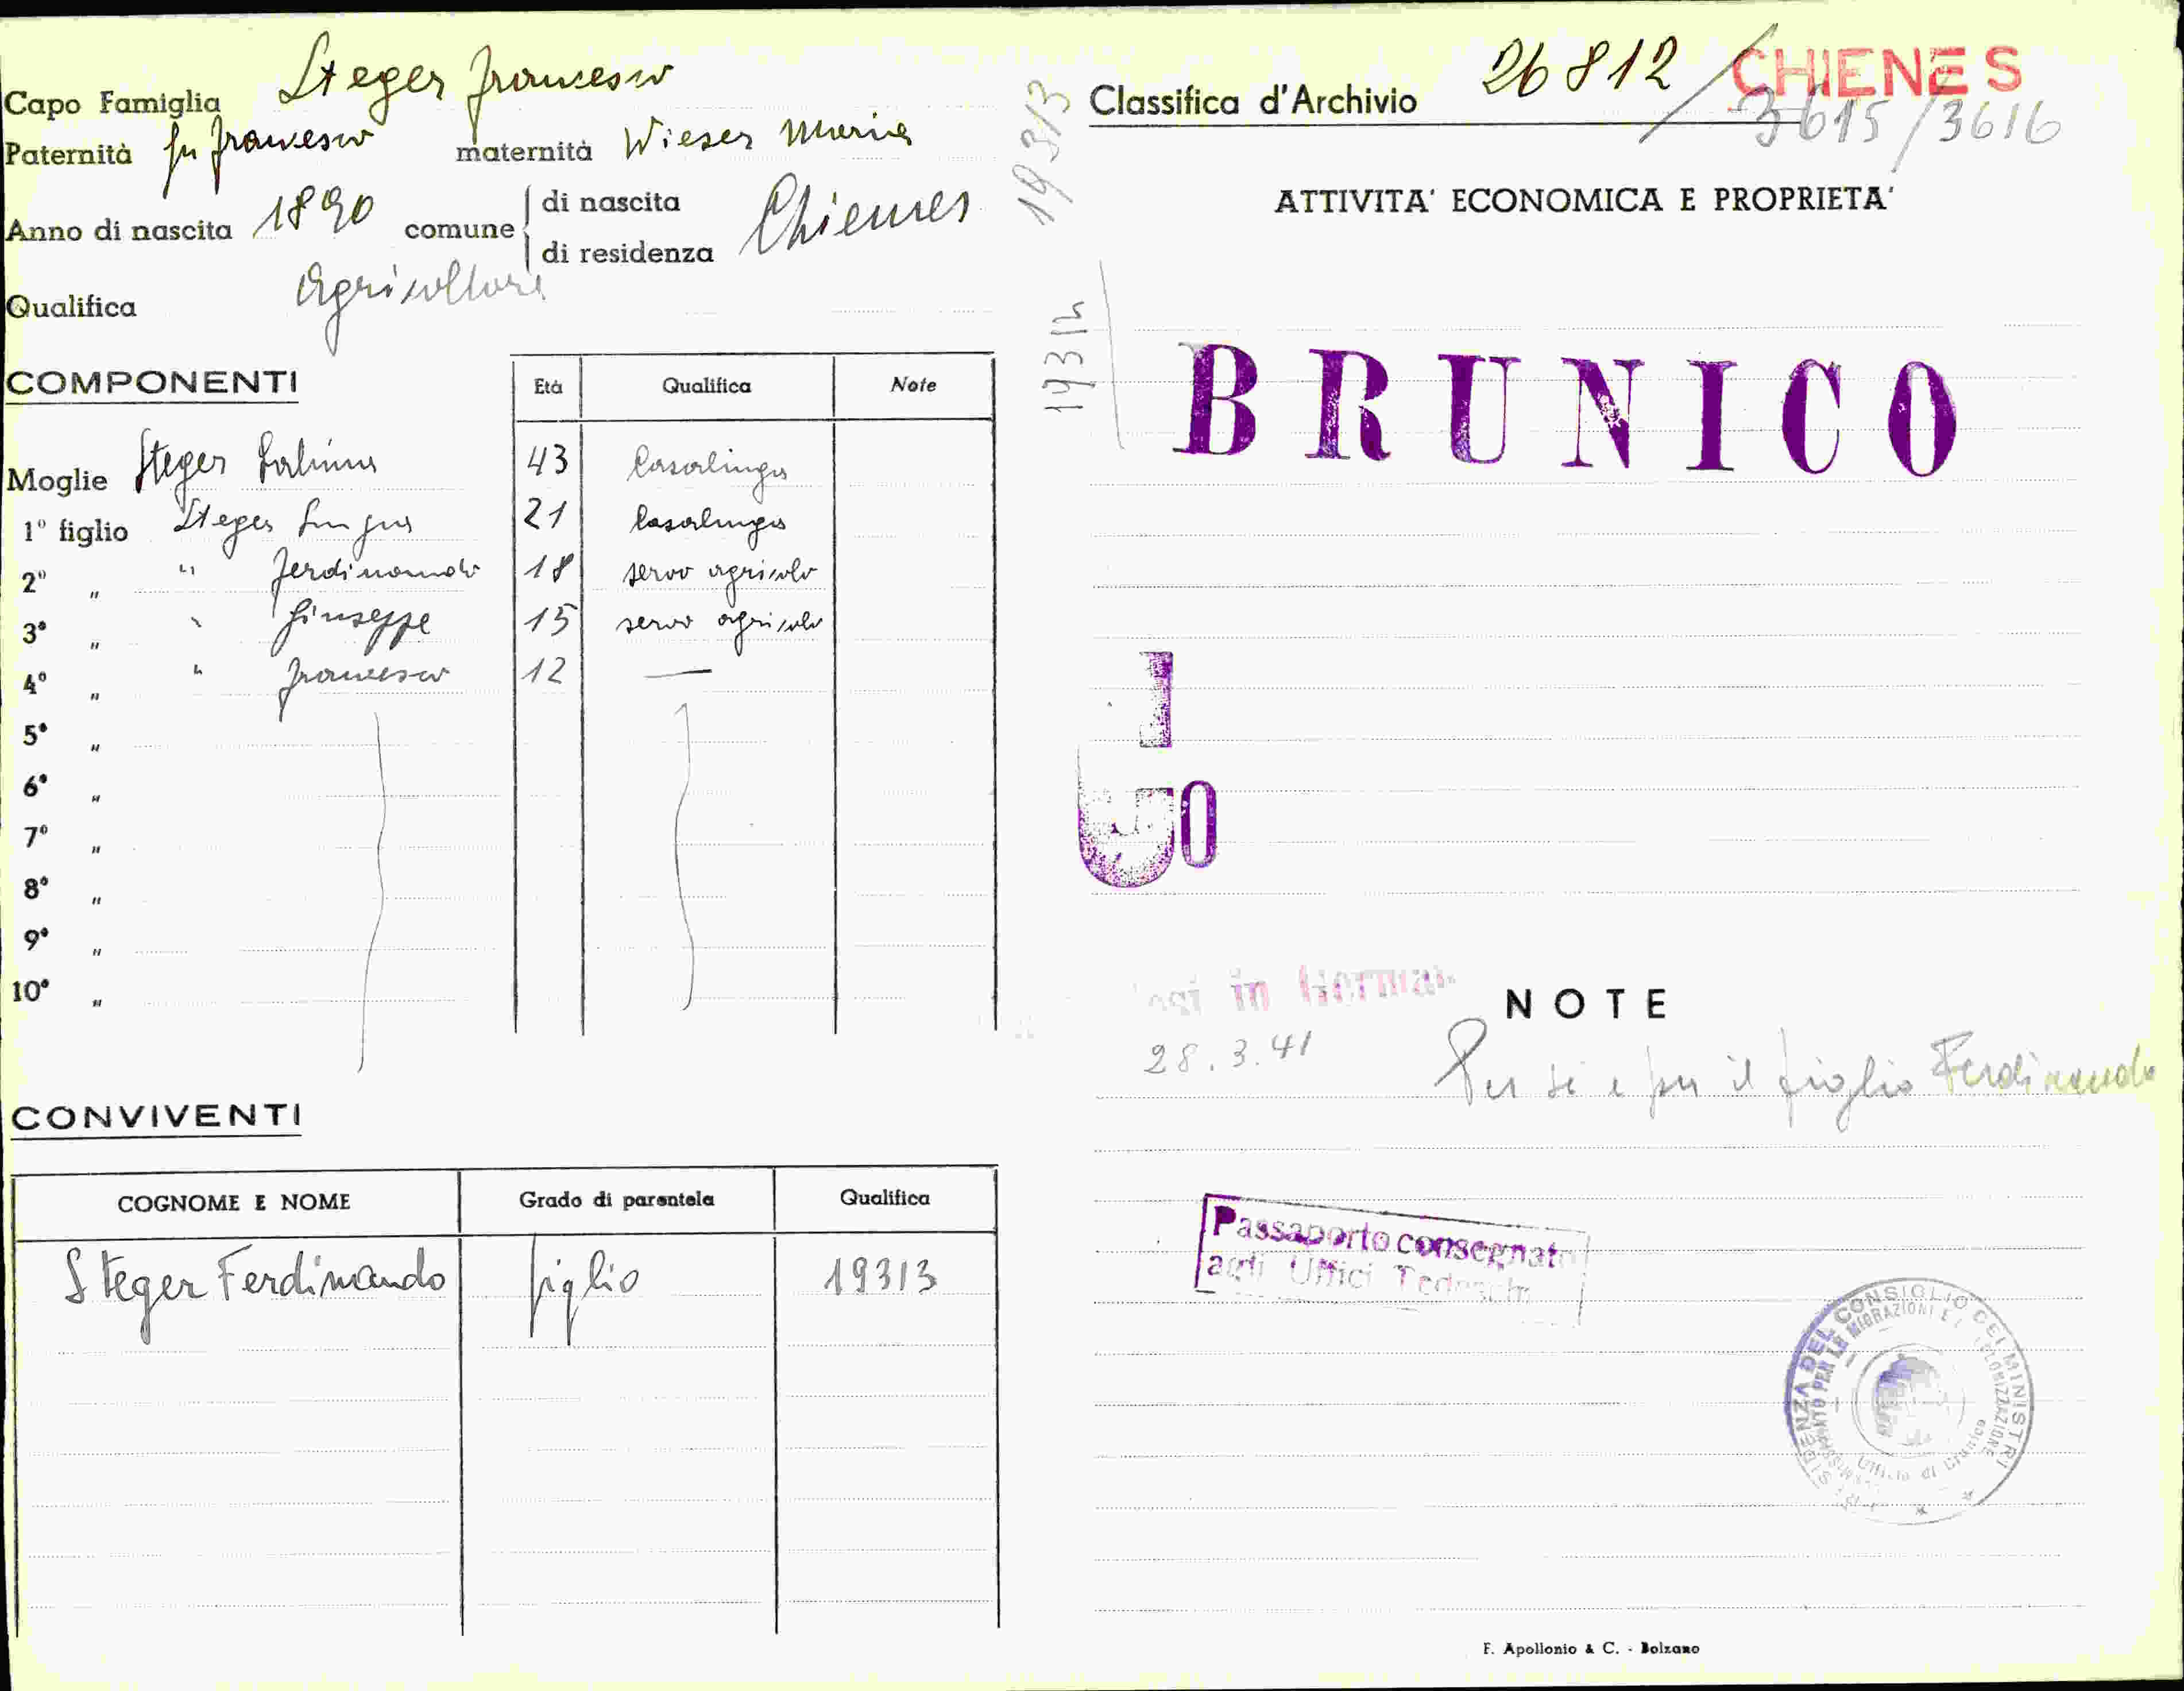 Capo Famiglia Steger Francesco
Paternità fu Francesco maternità Wieser Maria
Anno di nascita 1890 comune di nascita di residenza Chienes
Qualifica Agricoltore
COMPONENTI Età Qualifica Note
Moglie Steger 43 Casalinga
1° figlio Steger 21 Casalinga
2° " " Ferdinando 18 servo agricolo
3° " " Giuseppe 15 servo agricolo
4° " " Francesco 12 —
5° "
6° "
7° "
8° "
9° "
10° "
CONVIVENTI
COGNOME E NOME Grado di parentela Qualifica
Steger Ferdinando figlio 19313
19313
19312
Classifica d'Archivio 26812 / CHIENES
3615/3616
ATTIVITA' ECONOMICA E PROPRIETA'
BRUNICO
in
NOTE
28.3.41
Per sé e per il figlio Ferdinando
Passaporto consegnato
agli Uffici Tedeschi
CONSIGLIO DEI MINISTRI
F. Apollonio & C. - Bolzano